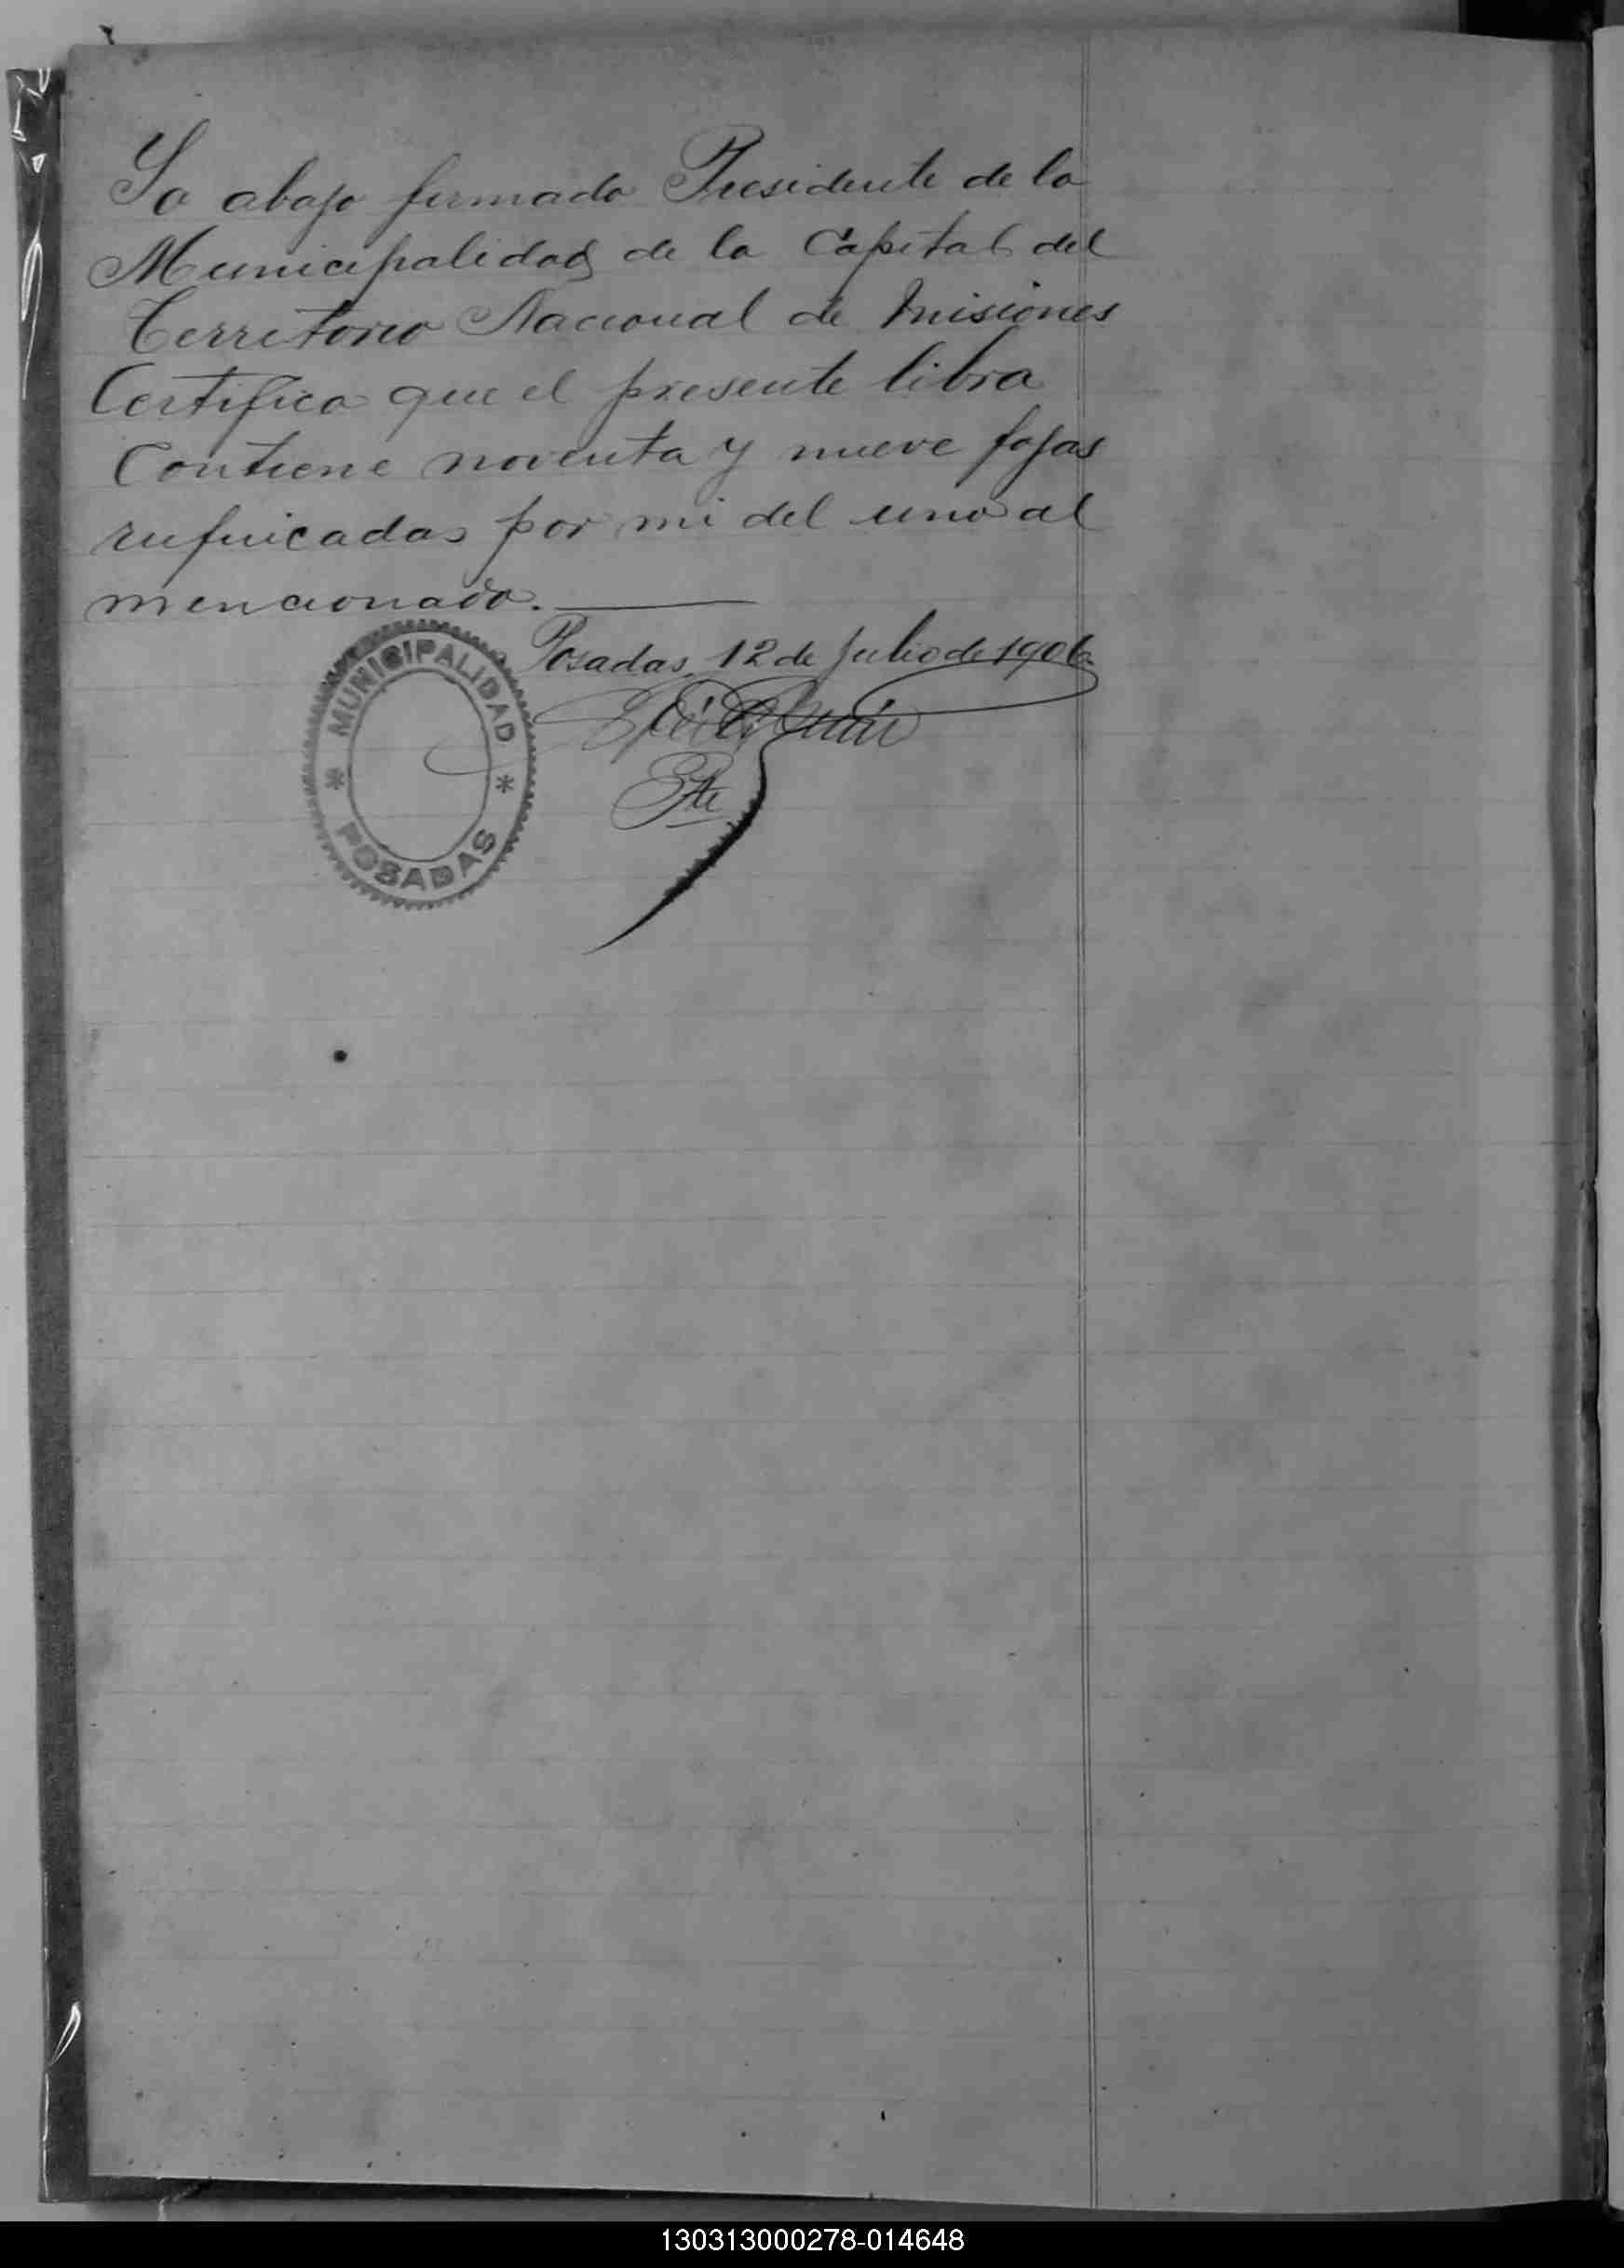 Yo abajo firmado Presidente de la
Municipalidad de la Capital del
Territorio Nacional de Misiones
Certifico que el presente libro
Contiene noventa y nueve fojas
rufricadas por mi del uno al
mencionado.
Posadas, 12 de Julio de 1906
Pte
MUNICIPALIDAD
* *
POSADAS
130313000278-014648